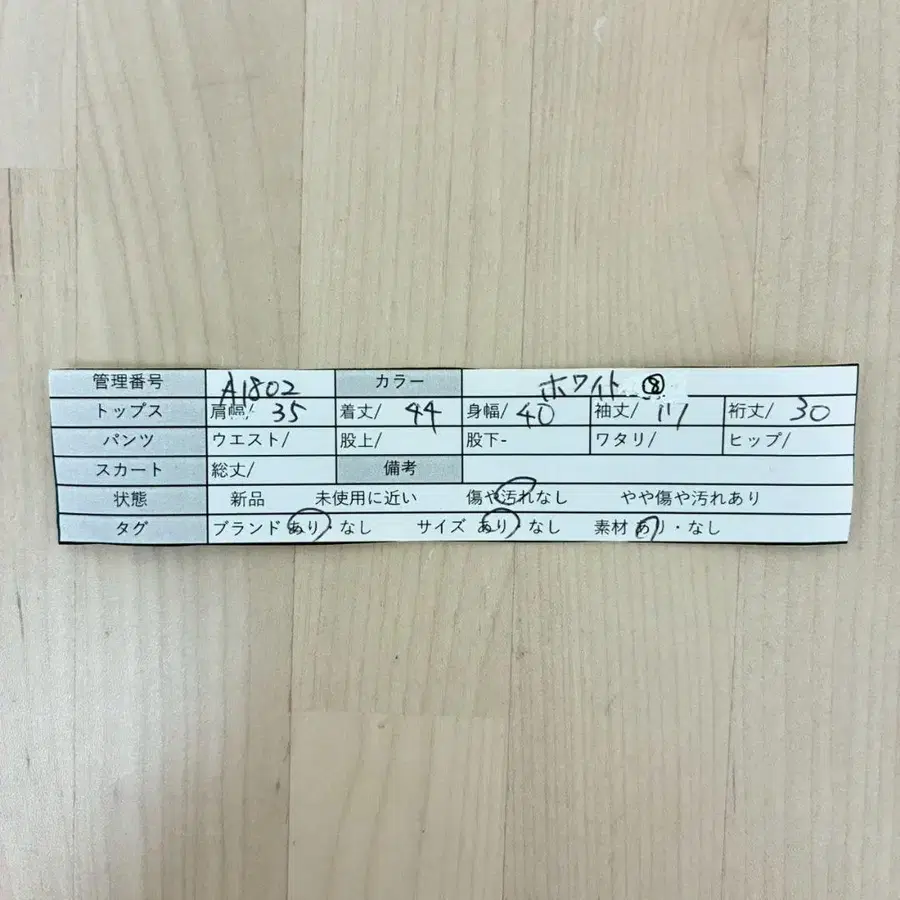 管理番号 A1802 カラー ホワイト ⑧
トップス 肩幅/ 35 着丈/ 44 身幅/ 40 袖丈/ 裄丈/ 30
パンツ ウエスト/ 股上/ 股下- ワタリ/ ヒップ/
スカート 総丈/ 備考
状態 新品 未使用に近い 傷や汚れなし やや傷や汚れあり
タグ ブランド あり・なし サイズ あり・なし 素材 あり・なし